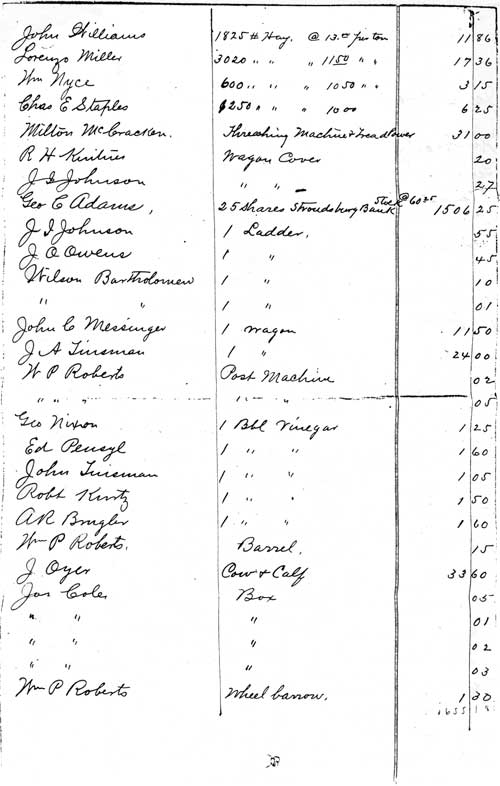 John Williams 1825 # Hay. @ 13.00 per ton 11 86
Lorenzo Miller 3020 " " " 11 50 " " 17 36
Wm Nyce 600 " " " 10 50 " " 3 15
Chas E Staples 1250 " " " 10 00 6 25
Milton McCracken. Threshing Machine & Treadpower 31 00
R H Kintner Wagon Cover 20
J I Johnson " " 27
Geo E Adams, 25 Shares Stroudsburg Bank Stock @ 60 25 1506 25
J I Johnson 1 Ladder, 55
J O Owens 1 " 45
Wilson Bartholomew 1 " 10
" " 1 " 01
John C Messinger 1 Wagon 11 50
J A Tinsman 1 " 24 00
W P Roberts Post Machine 02
" " " " " 05
Geo Nixon 1 Bbl Vinegar 1 25
Ed Pensyl 1 " " 1 60
John Tinsman 1 " " 1 05
Robt Kintz 1 " " 1 50
A R Brugler 1 " " 1 60
Wm P Roberts. Barrel. 15
J Oyer Cow & Calf 33 60
Jas Coler Box 05
" " " 01
" " " 02
" " " 03
Wm P Roberts Wheel barrow. 1 30
1655